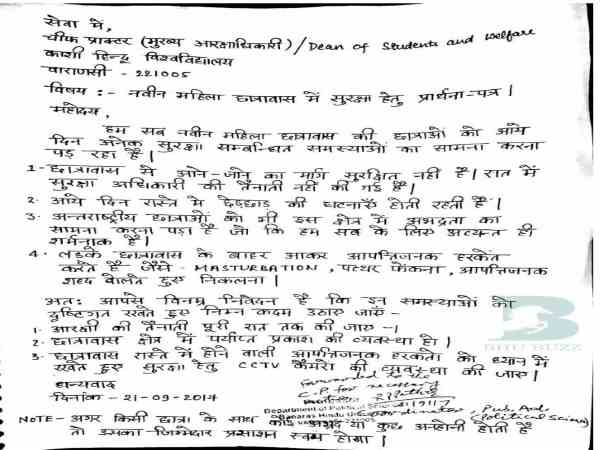 सेवा में,
चीफ प्राक्टर (मुख्य आरक्षाधिकारी) / Dean of Students and Welfare
काशी हिन्दू विश्वविद्यालय
वाराणसी - 221005
विषय :- नवीन महिला छात्रावास में सुरक्षा हेतु प्रार्थना-पत्र |
महोदय,
हम सब नवीन महिला छात्रावास की छात्राओं को आये
दिन अनेक सुरक्षा सम्बन्धित समस्याओं का सामना करना
पड़ रहा है |
1- छात्रावास में आने-जाने का मार्ग सुरक्षित नहीं है | रात में
सुरक्षा अधिकारी की तैनाती नहीं की गई है |
2. आये दिन रास्ते में छेड़छाड़ की घटनाएँ होती रहती है |
3. अन्तराष्ट्रीय छात्राओं को भी इस क्षेत्र में अभद्रता का
सामना करना पड़ा है जो कि हम सब के लिए अत्यन्त ही
शर्मनाक है |
4. लड़के छात्रावास के बाहर आकर आपत्तिजनक हरकत
करते है जैसे - MASTURBATION, पत्थर फेंकना, आपत्तिजनक
शब्द बोलते हुए निकलना |
अतः आपसे विनम्र निवेदन है कि इन समस्याओं को
दृष्टिगत रखते हुए निम्न कदम उठाए जाए -
1. आरक्षी की तैनाती पूरी रात तक की जाए -|
2. छात्रावास क्षेत्र में पर्याप्त प्रकाश की व्यवस्था हो |
3. छात्रावास रास्ते में होने वाली आपत्तिजनक हरकतों को ध्यान में
रखते हुए सुरक्षा हेतु CCTV कैमरों की व्यवस्था की जाए |
धन्यवाद
Forwarded to the
C.P for necessary
दिनांक - 21-09-2017
Department of Political Science
Banaras Hindu
Co-ordinator, Pub. Ad.
(Political Science)
NOTE - अगर किसी छात्रा के साथ कोई अभद्र या कुछ अनहोनी होती है
तो उसका जिम्मेदार प्रशासन स्वयं होगा |
BHU BUZZ